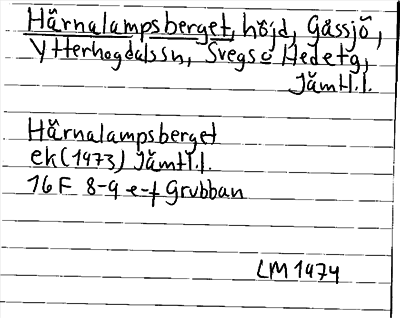 Härnalampsberget, höjd, Gåssjö,
Ytterhogdalssn, Svegs o Hede tg,
Jämtl.l.
Härnalampsberget
ek (1973) Jämtl.l.
16F 8-9 e-f Grubban
LM 1974